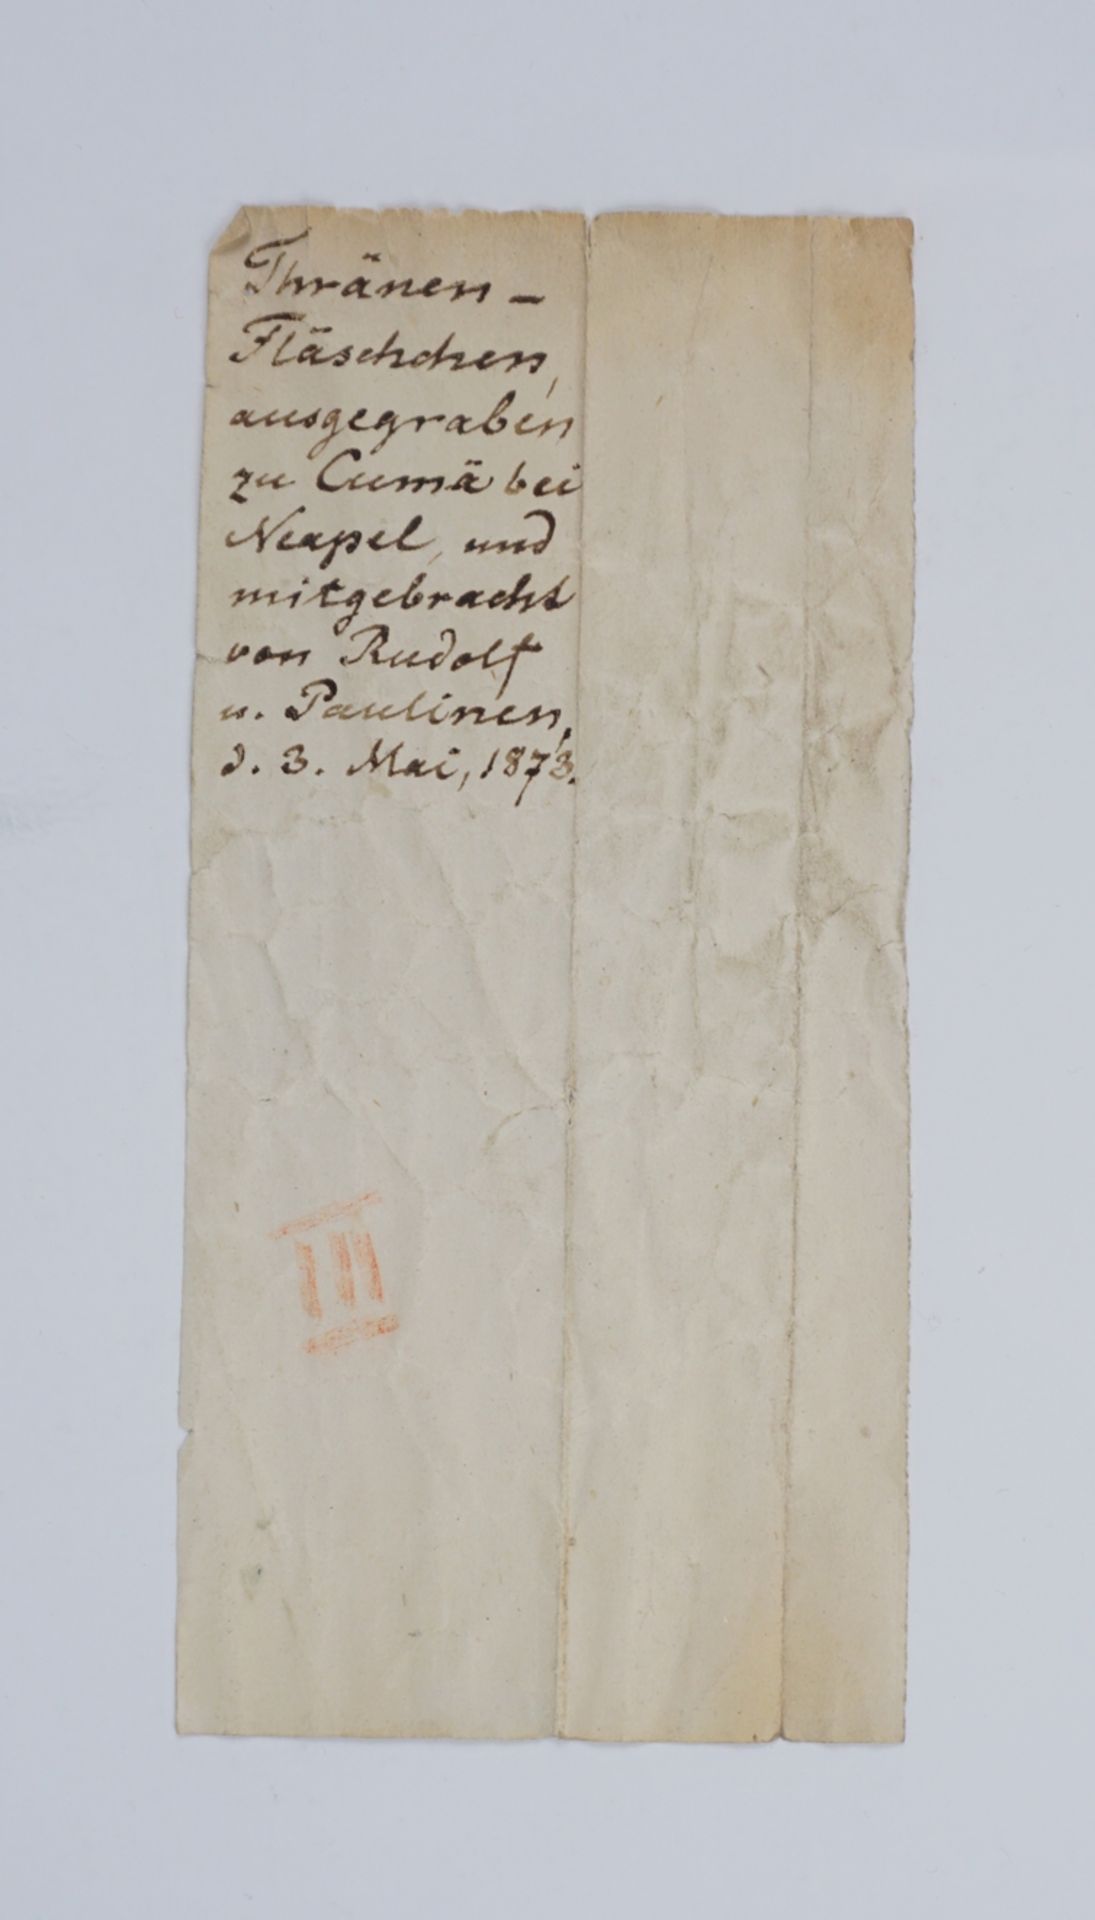 Thränen-
Fläschchen,
ausgegraben
zu Cumä bei
Neapel, und
mitgebracht
von Rudolf
u. Paulinen,
d. 3. Mai, 1873.
III